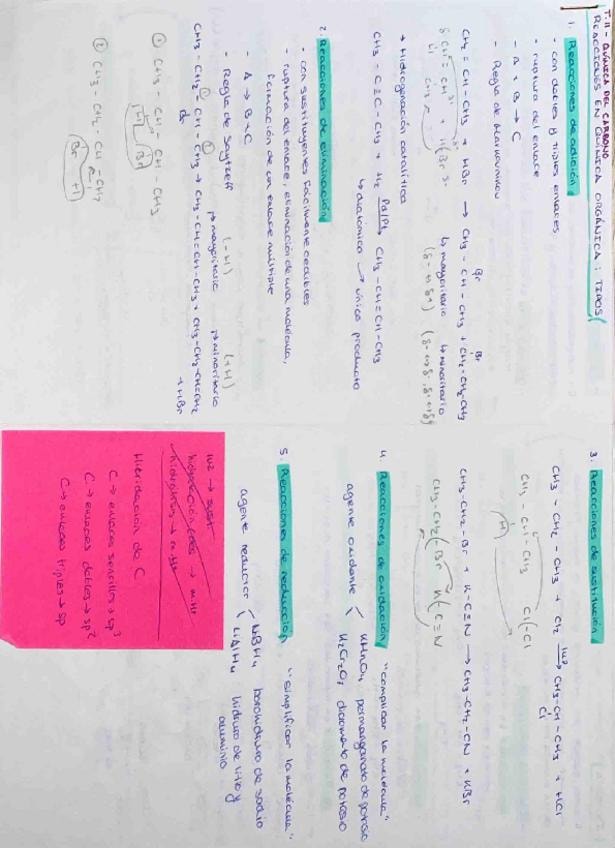 T.11 - QUÍMICA DEL CARBONO
REACCIONES EN QUÍMICA ORGÁNICA: TIPOS
1. Reacciones de adición
- con dobles y triples enlaces
- ruptura del enlace
- A + B → C
- Regla de Markovnikov
CH2 = CH - CH3 + HBr → CH3 - CH - CH3 + CH2 - CH2 - CH3
Br Br
↳ mayoritario ↳ minoritario
+ Hidrogenación catalítica
CH3 - C ≡ C - CH3 + H2 Pd/Pt → CH3 - CH = CH - CH3
↳ diatómico → único producto
2. Reacciones de eliminación
- con sustituyentes fácilmente cedibles
- ruptura del enlace, eliminación de una molécula,
formación de un enlace múltiple
- A → B + C
- Regla de Saytzeff
(-H) (+H)
mayoritario minoritario
CH3 - CH2 - CH - CH3 → CH3 - CH = CH - CH3 + CH3 - CH2 - CH = CH2
Br + HBr
① CH3 - CH - CH - CH3
H Br
② CH3 - CH2 - CH - CH2
Br H
3. Reacciones de sustitución
CH3 - CH2 - CH3 + Cl2 luz → CH3 - CH - CH3 + HCl
Cl
CH3 - CH - CH3 Cl - Cl
H
CH3 - CH2 - Br + K - C ≡ N → CH3 - CH2 - CN + KBr
CH3 - CH2 - Br K - C ≡ N
4. Reacciones de oxidación "complicar la molécula"
agente oxidante < KMnO4 permanganato de potasio
K2Cr2O7 dicromato de potasio
5. Reacciones de reducción "simplificar la molécula"
agente reductor < NaBH4 borohidruro de sodio
LiAlH4 hidruro de litio y
aluminio
luz → sust
Hibridación de C
C → enlaces sencillos → sp3
C → enlaces dobles → sp2
C → enlaces triples → sp